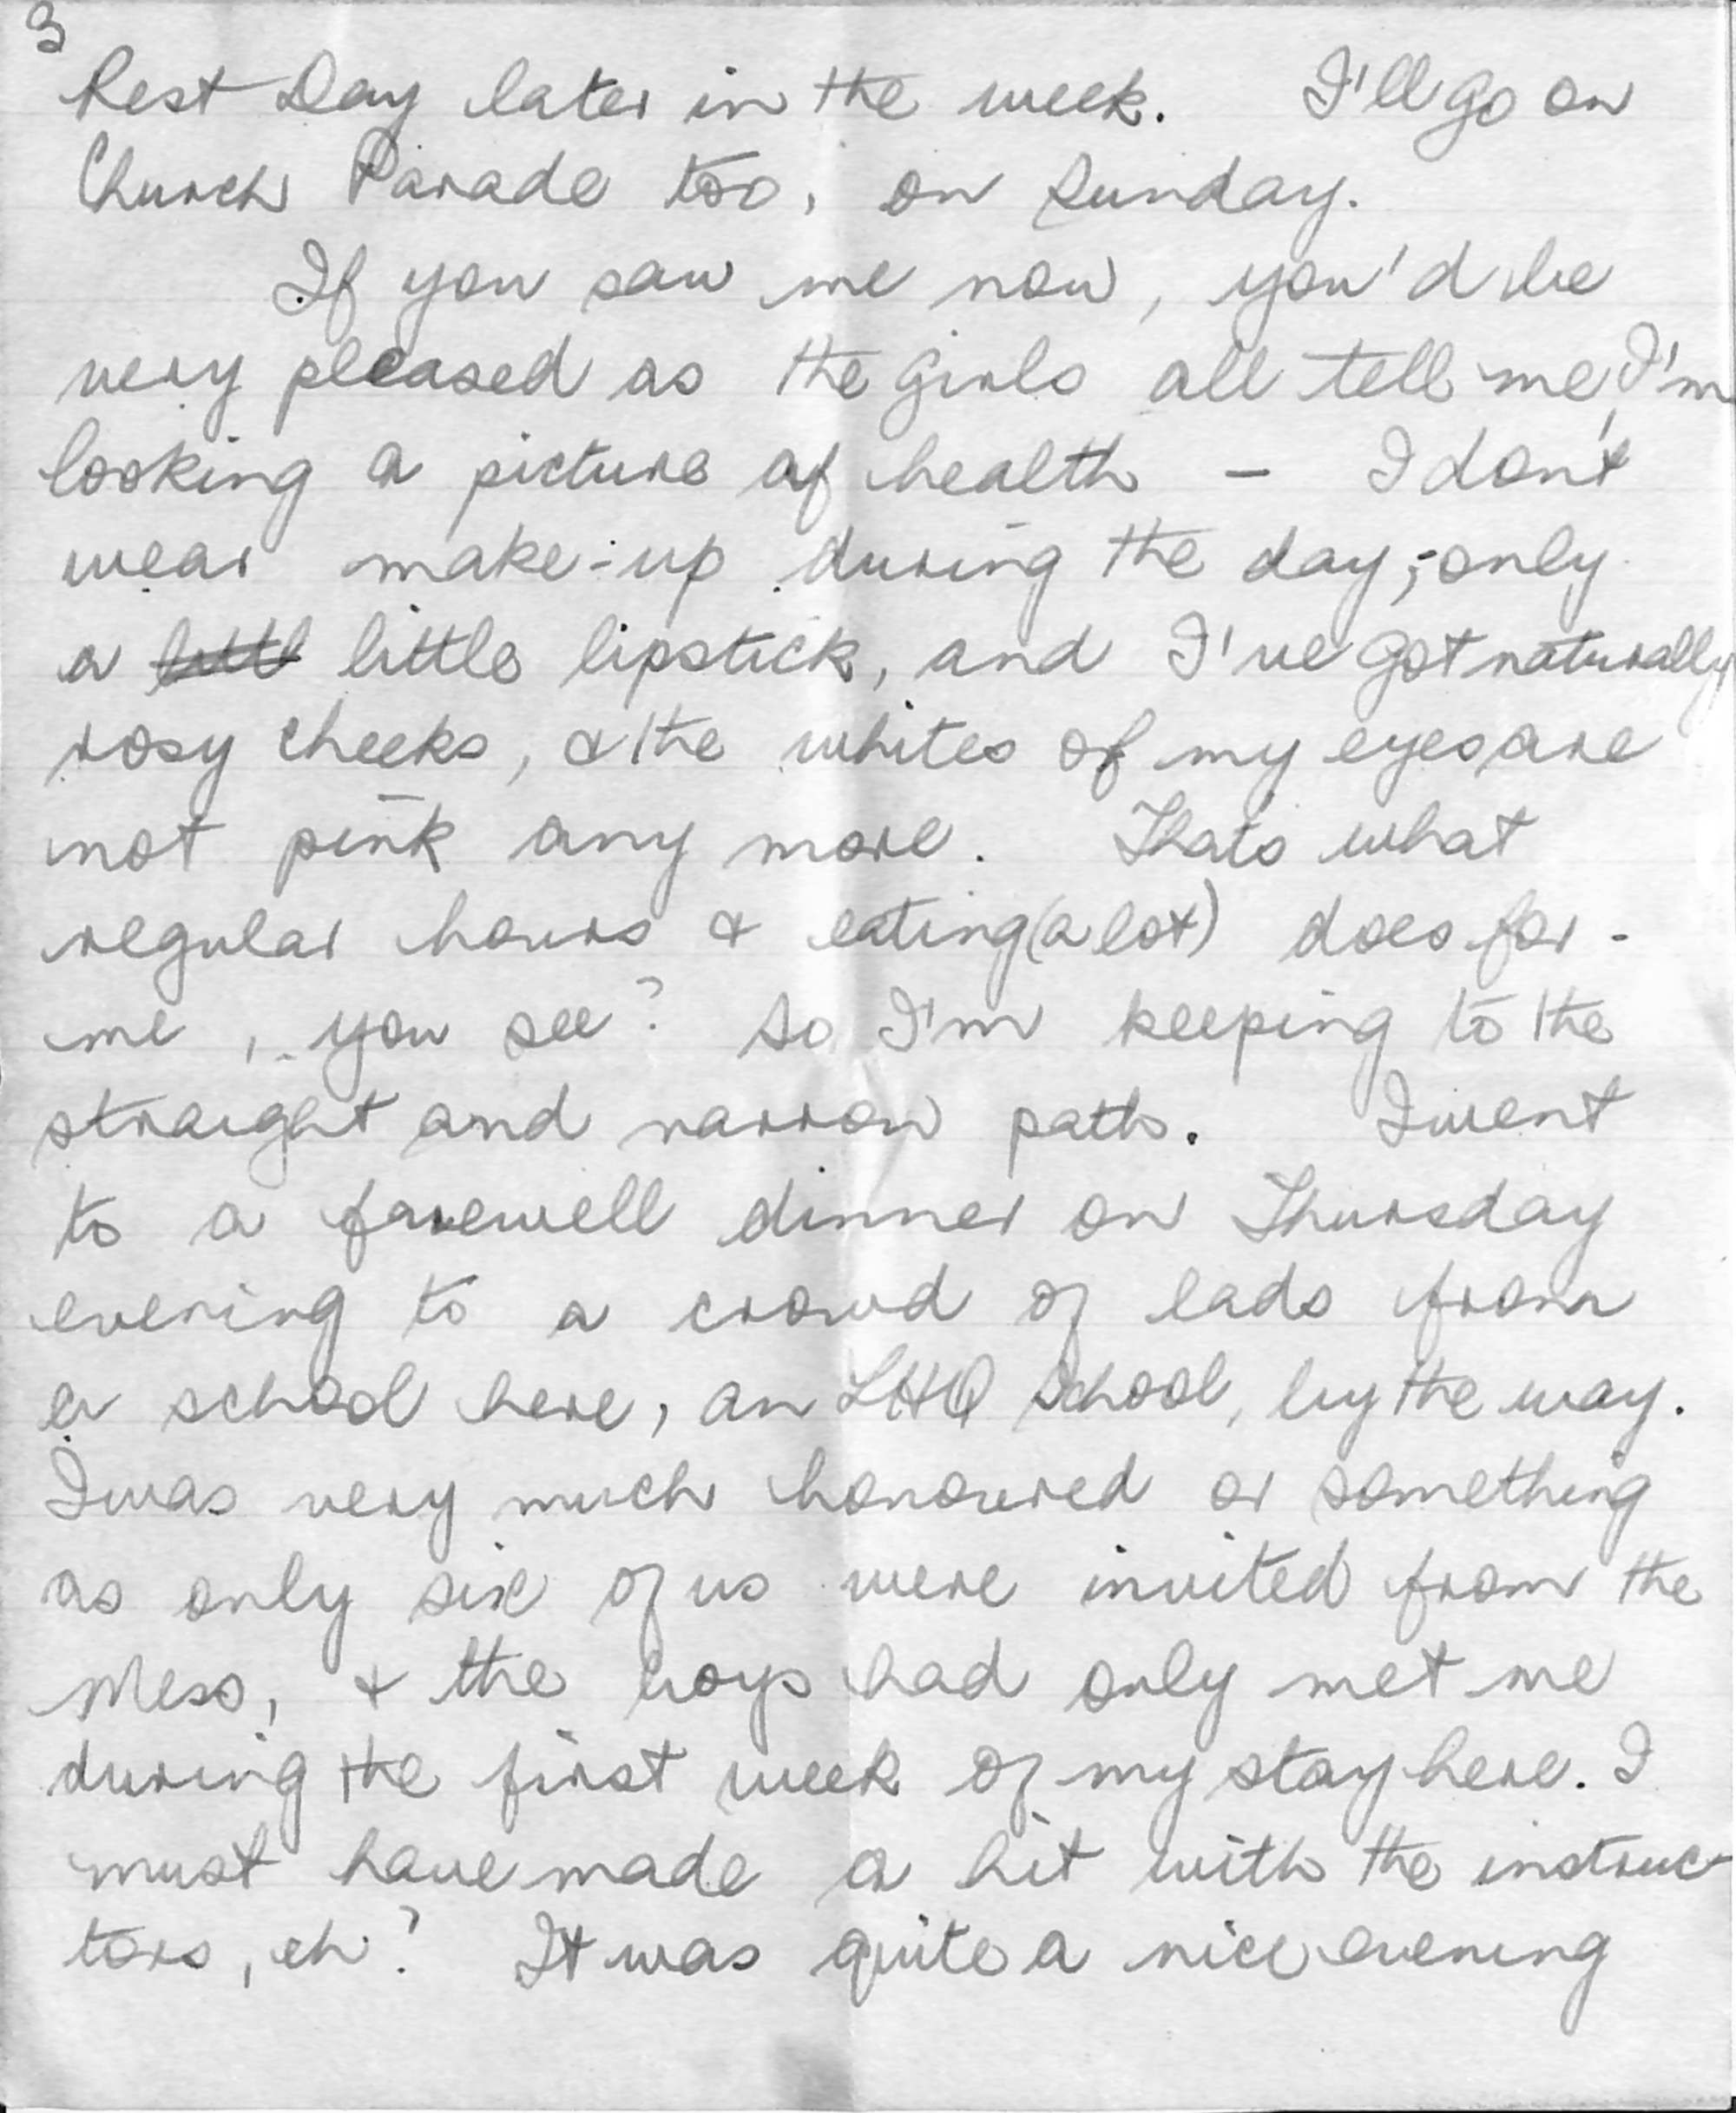 3
Rest Day later in the week. I'll go on
Church Parade too, on Sunday.
If you saw me now, you'd be
very pleased as the girls all tell me, I'm
looking a picture of health - I don't
wear make-up during the day, - only
a little little lipstick, and I've got naturally
rosy cheeks, & the whites of my eyes are
not pink any more. Thats what
regular hours & eating (a lot) does for -
me, you see? So I'm keeping to the
straight and narrow path. I went
to a farewell dinner on Thursday
evening to a crowd of lads from
a school here, an LHQ school, by the way.
I was very much honoured or something
as only six of us were invited from the
Mess, & the boys had only met me
during the first week of my stay here. I
must have made a hit with the instruc-
tors, eh? It was quite a nice evening